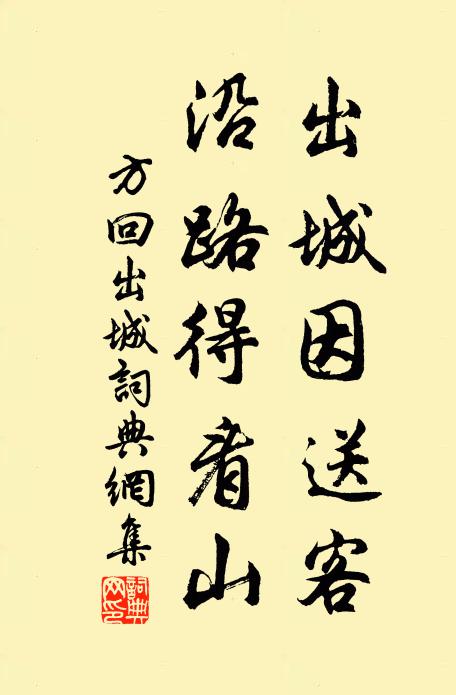 出城因送客
沿路得看山
方回出城詞典網集
詞典網印